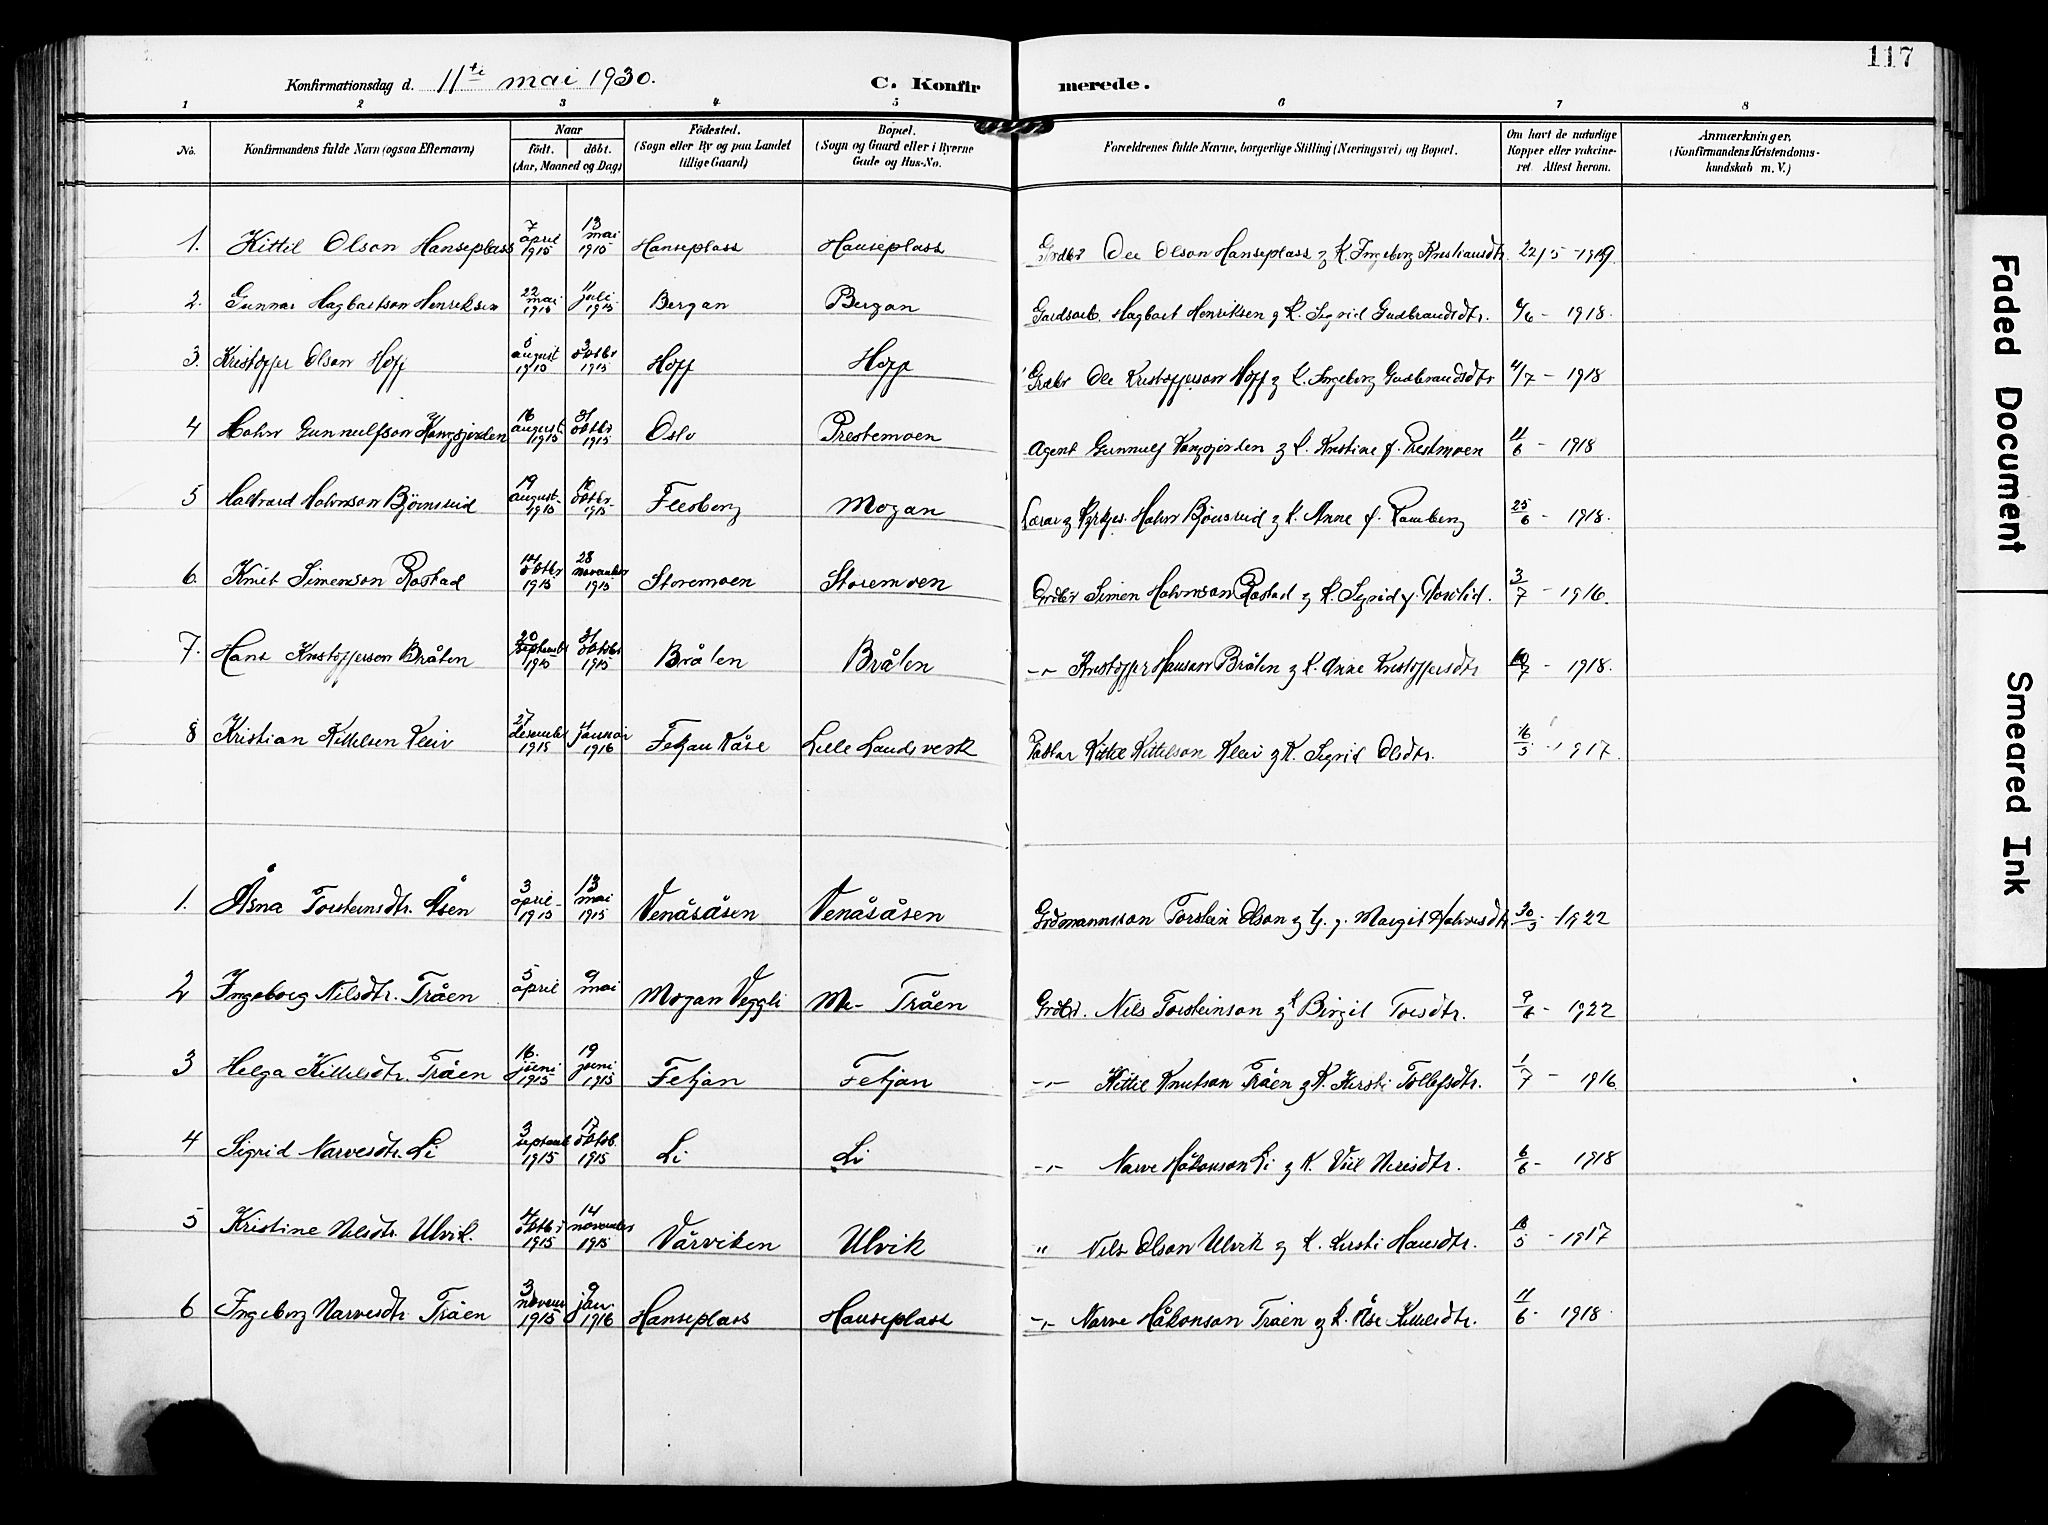 117
Konfirmationsdag d. 11te mai 1930. C. Konfir merede.
1 2 3 4 5 6 7 8
No. Konfirmandens fulde Navn (ogsaa Efternavn) Naar födt. döbt. (Aar, Maaned og Dag) Födested. (Sogn eller By og paa Landet tillige Gaard) Bopæl. (Sogn og Gaard eller i Byerne Gade og Hus-No. Forældrenes fulde Navne, borgerlige Stilling (Næringsvei) og Bopæl. Om havt de naturlige Kopper eller vakcineret Attest herom. Anmærkninger, (Konfirmandens Kristendomskundskab m. V.)
1. Kittil Olson Hanseplass 7 april 1915 13 mai 1915 Hanseplass Hanseplass Grdbr Ole Olson Hanseplass g K. Ingeborg Kristiansdtr 22/5 - 1919
2. Gunnar Hagbartson Henriksen 22 mai 1915 juli 1915 Bergan Bergan Gardsarb. Hagbart Henriksen g K. Sigrid Gudbrandsdtr. 6/6 - 1918.
3. Kristoffer Olson Hoff 5 august 1915 3 oktbr 1915 Hoff Hoff Grdbr Ole Kristofferson Hoff g K. Ingeborg Gudbrandsdtr 4/7 - 1918
4 Halvor Gunnulfson Kongsjorden 16 august 1915 31 oktbr 1915 Oslo Prestemoen Agent Gunnulf Kongsjorden g K. Kristine f. Prestmoen 11/6 - 1918
5 Hallvard Halvorson Bjørnsrud 19 august 1915 oktbr 1915 Flesberg Mogan Lærar g Kyrkjes. Halvor Bjørnsrud g K. Anne f. Ramberg 25/6 - 1918.
6. Knut Simenson Rostad 14 oktbr 1915 28 november 1915 Storemoen Storemoen Grdbr Simen Halvorson Rostad g K. Sigrid f. 3/7 - 1916.
7. Hans Kristofferson Bråten 20 septembr 1915 31 oktbr 1915 Bråten Bråten -"- Kristoffer Hanson Bråten g K. Anne Kristoffersdtr 10/7 - 1918.
8 Kristian Kittelsen Kleiv 27 desember 1915 januar 1916 Fetjan Kåse Lille Landsverk Kittil Kittelson Kleiv g K. Sigrid Olsdtr. 16/5 - 1917.
1. Åsna Torsteinsdtr. Åsen 3 april 1915 13 mai 1915 Venåsåsen Venåsåsen Grdmannsson Torstein Olson g G. f. Margit Halvorsdtr 30/3 - 1922
2 Ingeborg Nilsdtr. Tråen 5 april 9 mai Mogan Veggli M- Tråen Grdbr. Nils Torsteinson g K Birgit Torsdtr. 9/6 - 1922
3 Helga Kittelsdtr. Tråen 16. juni 1915 19 juni 1915 Fetjan Fetjan -"- Kittil Knutson Tråen g K. Kirsti Tollefsdtr. 1/7 - 1916
4 Sigrid Narvesdtr. Li 3 septembr 1915 17 oktob. 1915 Li Li -"- Narve Håkonson Li g K. Viil Nirisdtr. 6/6 - 1918
5 Kristine Nilsdtr. Ulvik. 4 oktbr 1915 14 november 1915 Vårviken Ulvik " Nils Olson Ulvik g K. Kirsti Hansdtr. 16/5 - 1917
6 Ingeborg Narvesdtr. Tråen 3 novem 1915 9 jan. 1916 Hanseplass Hanseplass -"- Narve Håkonson Tråen g K. Åse Kittelsdtr. 11/6 - 1918.
Faded Document
Smeared Ink